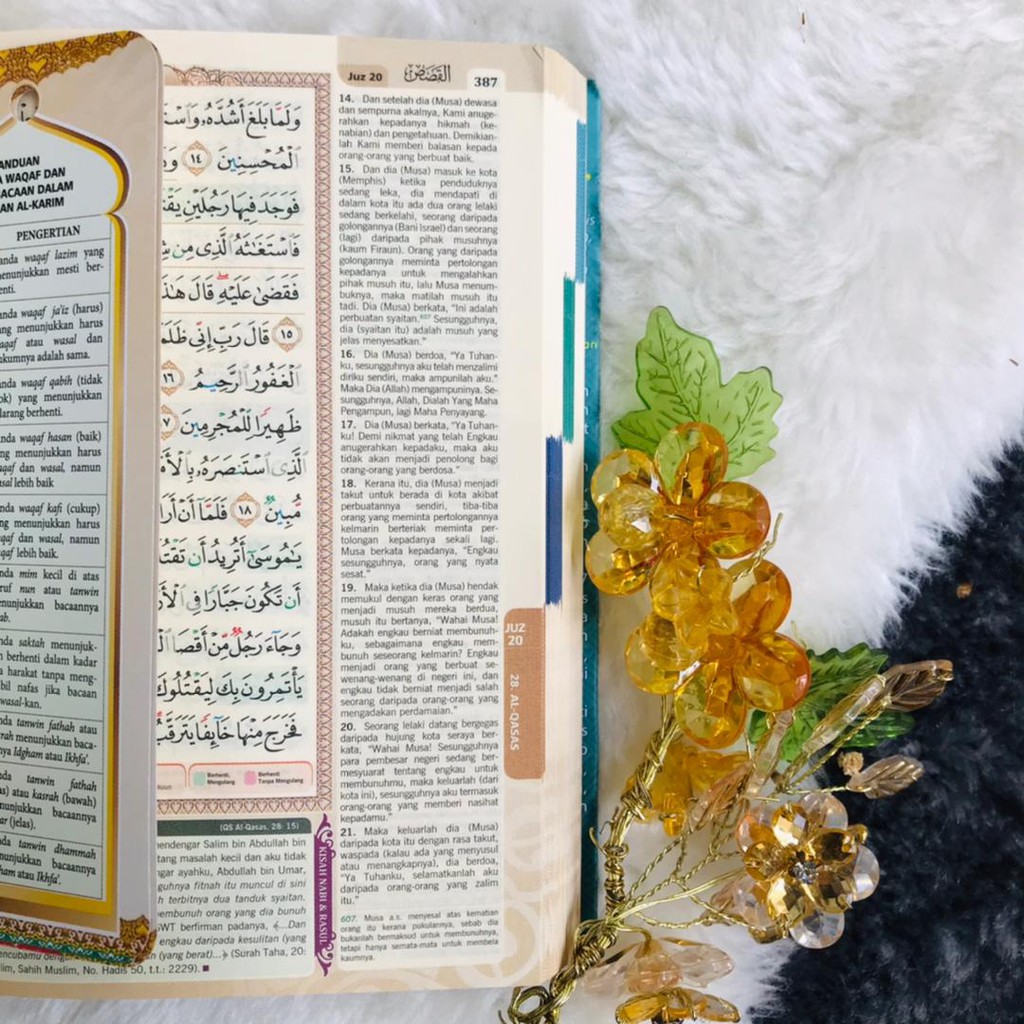 ANDUAN
WAQAF DAN
ACAAN DALAM
AN AL-KARIM
PENGERTIAN
anda waqaf lazim yang
enunjukkan mesti ber-
enti.
anda waqaf ja'iz (harus)
ng menunjukkan harus
aqaf atau wasal dan
ukumnya adalah sama.
nda waqaf qabih (tidak
ok) yang menunjukkan
larang berhenti.
nda waqaf hasan (baik)
ng menunjukkan harus
qaf dan wasal, namun
sal lebih baik
nda waqaf kafi (cukup)
g menunjukkan harus
qaf dan wasal, namun
qaf lebih baik.
nda mim kecil di atas
ruf nun atau tanwin
enunjukkan bacaannya
ab.
nda saktah menunjuk-
n berhenti dalam kadar
a harakat tanpa meng-
bil nafas jika bacaan
wasal-kan.
nda tanwin fathah atau
rah menunjukkan baca-
nya Idgham atau Ikhfa'.
nda tanwin fathah
s) atau kasrah (bawah)
nunjukkan bacaannya
ar (jelas).
nda tanwin dhammah
nunjukkan bacaannya
ham atau Ikhfa'.
وَلَمَّا بَلَغَ أَشُدَّهُۥ وَٱسْتَ
ٱلْمُحْسِنِينَ ١٤
فَوَجَدَ فِيهَا رَجُلَيْنِ يَقْتَ
فَٱسْتَغَـٰثَهُ ٱلَّذِى مِن
فَقَضَىٰ عَلَيْهِ قَالَ هَـٰذَ
١٥ قَالَ رَبِّ إِنِّى ظَلَمْ
ٱلْغَفُورُ ٱلرَّحِيمُ ١٦
ظَهِيرًا لِّلْمُجْرِمِينَ
ٱلَّذِى ٱسْتَنصَرَهُۥ بِٱلْأَمْ
مُّبِينٌ ١٨ فَلَمَّآ أَنْ أَرَا
يَـٰمُوسَىٰٓ أَتُرِيدُ أَن تَقْتُ
أَن تَكُونَ جَبَّارًا فِى ٱلْأَرْ
وَجَآءَ رَجُلٌ مِّنْ أَقْصَا ٱلْ
يَأْتَمِرُونَ بِكَ لِيَقْتُلُوكَ
فَخَرَجَ مِنْهَا خَآئِفًا يَتَرَقَّبُ
Berhenti, Mengulang
Berhenti Tanpa Mengulang
(QS Al-Qasas, 28: 15)
mendengar Salim bin Abdullah bin
tang masalah kecil dan aku tidak
gar ayahku, Abdullah bin Umar,
guhnya fitnah itu muncul di sini
h terbitnya dua tanduk syaitan.
embunuh orang yang dia bunuh
WT berfirman padanya, ﴾...Dan
engkau daripada kesulitan (yang
(yang berat)...﴿ (Surah Taha, 20:
lim, Sahih Muslim, No. Hadis 50, t.t.: 2229).
KISAH NABI & RASUL
Juz 20 القصص 387
14. Dan setelah dia (Musa) dewasa
dan sempurna akalnya, Kami anuge-
rahkan kepadanya hikmah (ke-
nabian) dan pengetahuan. Demikian-
lah Kami memberi balasan kepada
orang-orang yang berbuat baik.
15. Dan dia (Musa) masuk ke kota
(Memphis) ketika penduduknya
sedang leka, dia mendapati di
dalam kota itu ada dua orang lelaki
sedang berkelahi, seorang daripada
golongannya (Bani Israel) dan seorang
(lagi) daripada pihak musuhnya
(kaum Firaun). Orang yang daripada
golongannya meminta pertolongan
kepadanya untuk mengalahkan
pihak musuh itu, lalu Musa menum-
buknya, maka matilah musuh itu
tadi. Dia (Musa) berkata, "Ini adalah
perbuatan syaitan.607 Sesungguhnya,
dia (syaitan itu) adalah musuh yang
jelas menyesatkan."
16. Dia (Musa) berdoa, "Ya Tuhan-
ku, sesungguhnya aku telah menzalimi
diriku sendiri, maka ampunilah aku."
Maka Dia (Allah) mengampuninya. Se-
sungguhnya, Allah, Dialah Yang Maha
Pengampun, lagi Maha Penyayang.
17. Dia (Musa) berkata, "Ya Tuhan-
ku! Demi nikmat yang telah Engkau
anugerahkan kepadaku, maka aku
tidak akan menjadi penolong bagi
orang-orang yang berdosa."
18. Kerana itu, dia (Musa) menjadi
takut untuk berada di kota akibat
perbuatannya sendiri, tiba-tiba
orang yang meminta pertolongannya
kelmarin berteriak meminta per-
tolongan kepadanya sekali lagi.
Musa berkata kepadanya, "Engkau
sesungguhnya, orang yang nyata
sesat."
19. Maka ketika dia (Musa) hendak
memukul dengan keras orang yang
menjadi musuh mereka berdua,
musuh itu bertanya, "Wahai Musa!
Adakah engkau berniat membunuh-
ku, sebagaimana engkau mem-
bunuh seseorang kelmarin? Engkau
menjadi orang yang berbuat se-
wenang-wenang di negeri ini, dan
engkau tidak berniat menjadi salah
seorang daripada orang-orang yang
mengadakan perdamaian."
20. Seorang lelaki datang bergegas
daripada hujung kota seraya ber-
kata, "Wahai Musa! Sesungguhnya
para pembesar negeri sedang ber-
mesyuarat tentang engkau untuk
membunuhmu, maka keluarlah (dari
kota ini), sesungguhnya aku termasuk
orang-orang yang memberi nasihat
kepadamu."
21. Maka keluarlah dia (Musa)
daripada kota itu dengan rasa takut,
waspada (kalau ada yang menyusul
atau menangkapnya), dia berdoa,
"Ya Tuhanku, selamatkanlah aku
daripada orang-orang yang zalim
itu."
607. Musa a.s. menyesal atas kematian
orang itu kerana pukulannya, sebab dia
bukanlah bermaksud untuk membunuhnya,
tetapi hanya semata-mata untuk membela
kaumnya.
JUZ
20
28. AL-QASAS